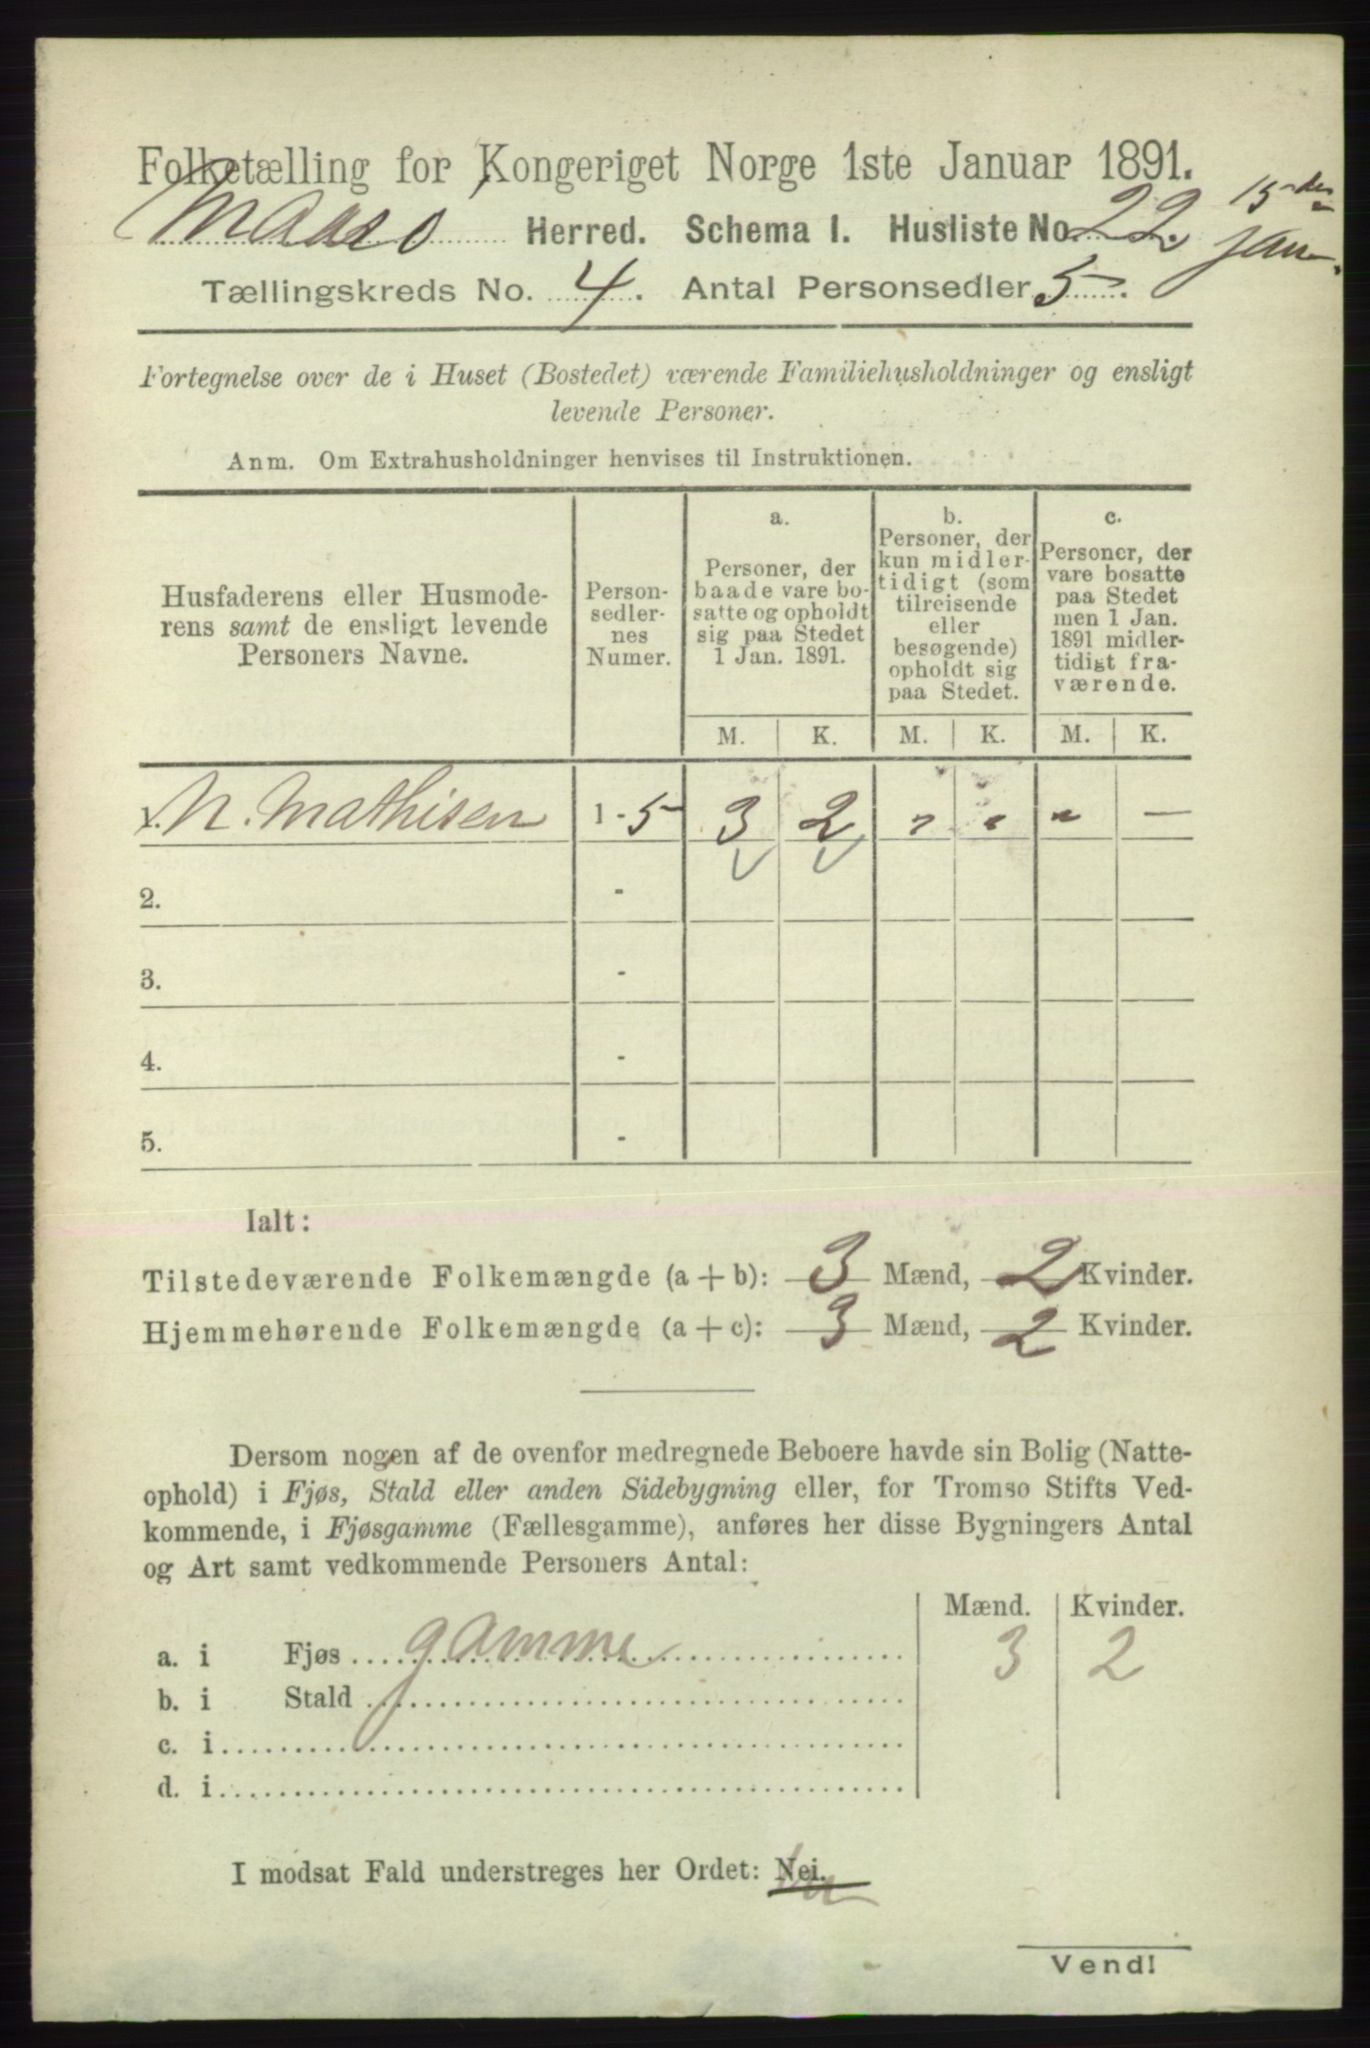 Folketælling for Kongeriget Norge 1ste Januar 1891.
Maaso Herred. Schema I. Husliste No. 22. 15de Jan.
Tællingskreds No. 4. Antal Personsedler 5.
Fortegnelse over de i Huset (Bostedet) værende Familiehusholdninger og ensligt
levende Personer.
Anm. Om Extrahusholdninger henvises til Instruktionen.
Husfaderens eller Husmode-
rens samt de ensligt levende
Personers Navne.
Person-
sedler-
nes
Numer.
a.
Personer, der
baade vare bo-
satte og opholdt
sig paa Stedet
1 Jan. 1891.
b.
Personer, der
kun midler-
tidigt (som
tilreisende
eller
besøgende)
opholdt sig
paa Stedet.
c.
Personer, der
vare bosatte
paa Stedet
men 1 Jan.
1891 midler-
tidigt fra-
værende.
M. K. M. K. M. K.
1. N. Mathisen 1 - 5 3 2 " " " —
2. -
3. -
4. -
5. -
Ialt:
Tilstedeværende Folkemængde (a + b): 3 Mænd, 2 Kvinder.
Hjemmehørende Folkemængde (a + c): 3 Mænd, 2 Kvinder.
Dersom nogen af de ovenfor medregnede Beboere havde sin Bolig (Natte-
ophold) i Fjøs, Stald eller anden Sidebygning eller, for Tromsø Stifts Ved-
kommende, i Fjøsgamme (Fællesgamme), anføres her disse Bygningers Antal
og Art samt vedkommende Personers Antal:
Mænd. Kvinder.
a. i Fjøs gamme 3 2
b. i Stald
c. i
d. i
I modsat Fald understreges her Ordet: Nei.
Vend!